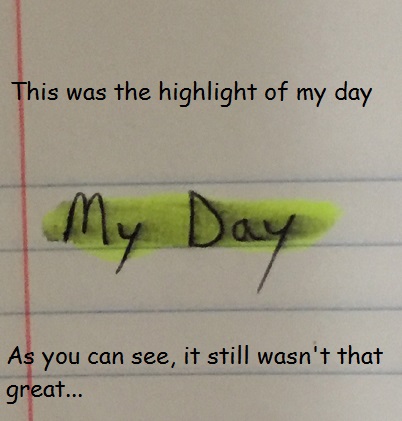 This was the highlight of my day
My Day
As you can see, it still wasn't that
great...